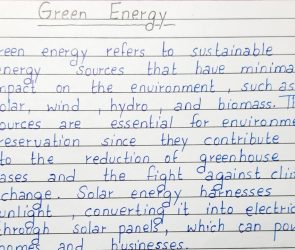 Green Energy
reen energy refers to sustainable
nergy sources that have minima
mpact on the environment, such as
olar, wind, hydro, and biomass. Th
ources are essential for environme
reservation since they contribute
to the reduction of greenhouse
ases and the fight against clim
change. Solar energy harnesses
unlight, converting it into electric
through solar panels, which can pow
homes and businesses.